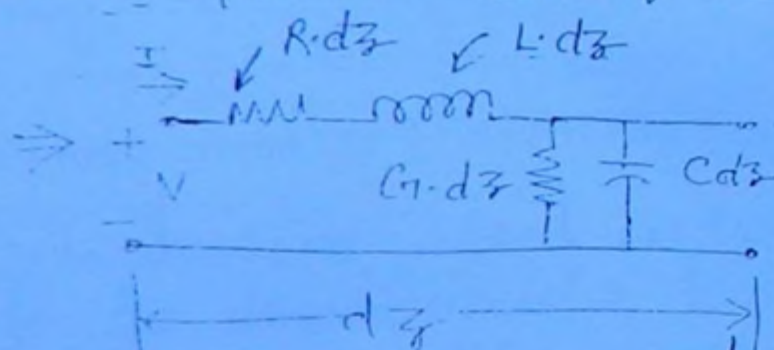 I R·dz L·dz
+
V G·dz Cdz
-
dz